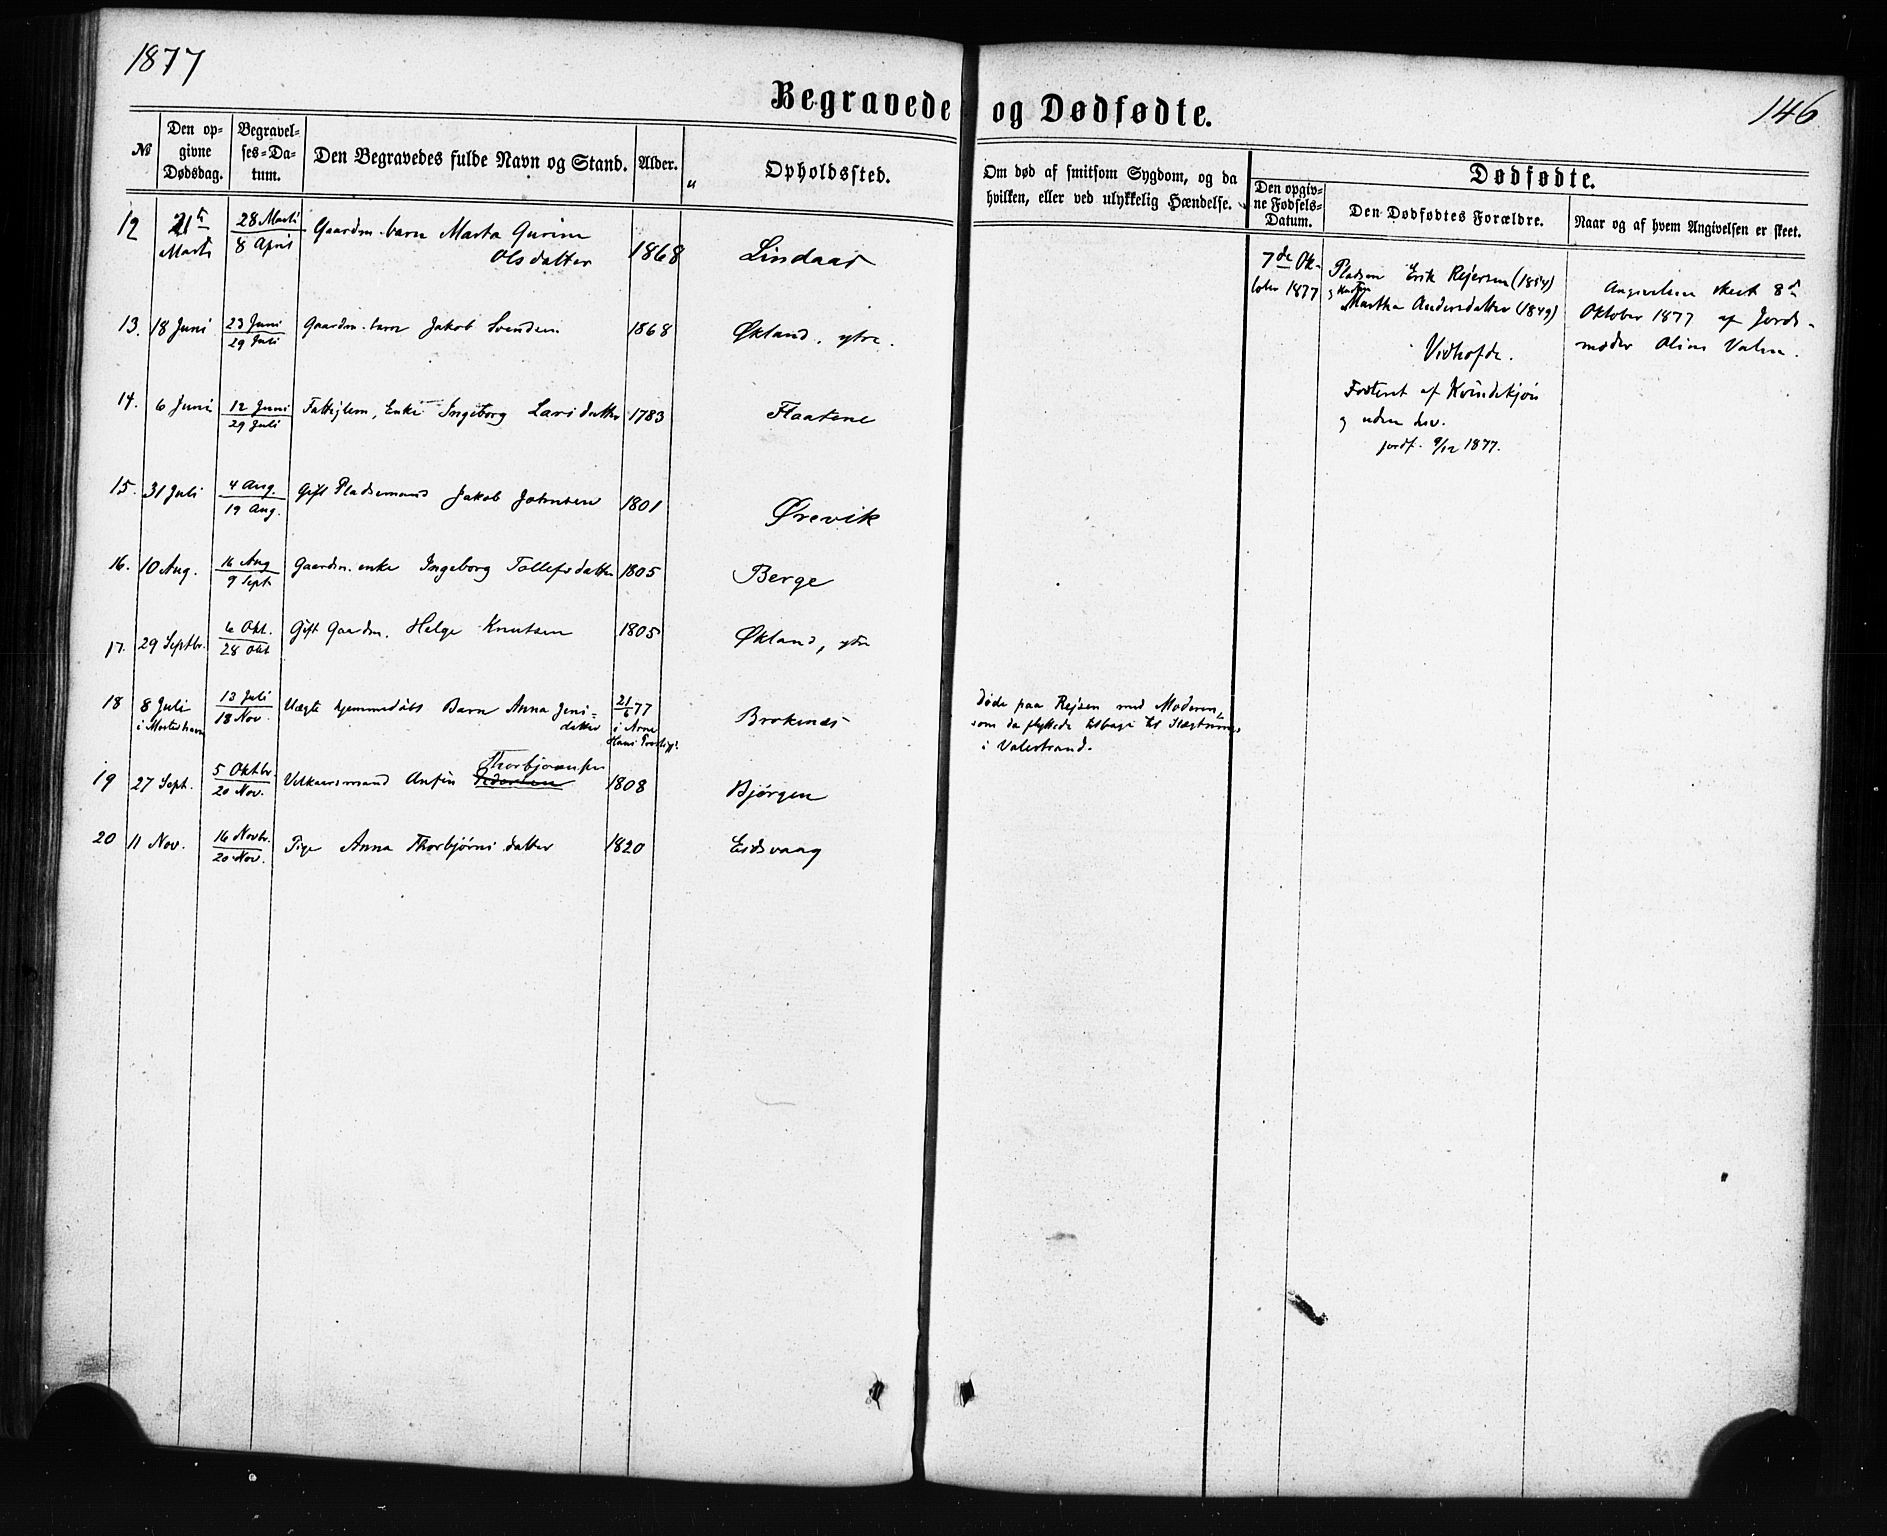 1877
146
Begravede og Dødfødte.
№
Den opgivne Dødsdag.
Begravelses-Datum.
Den Begravedes fulde Navn og Stand.
Alder.
"
Opholdssted.
Om død af smitsom Sygdom, og da hvilken, eller ved ulykkelig Hændelse.
Dødfødte.
Den opgivne Fødsels-Datum.
Den Dødfødtes Forældre.
Naar og af hvem Angivelsen er skeet.
12 21de Marts 28 Marts / 8 April Gaardm. barn Marta Gurine Olsdatter 1868 Lindaas
13. 18 Juni 23 Juni / 29 Juli Gaardm. barn Jakob Svendsen 1868 Økland, ytre.
14. 6 Juni 12 Juni / 29 Juli Enke Ingeborg Larsdatter 1783 Flaatene
15. 31 Juli 4 Aug. / 19 Aug. Gift Pladsemand Jakob Johnsen 1801 Ørevik
16. 10 Aug. 16 Aug / 9 Sept. Gaardm. enke Ingeborg Tollefsdatter 1805 Berge
17. 29 Septbr. 6 Okt. / 28 Okt Gift Gaardm. Helge Knutsen 1805 Økland, ytre
18 8 Juli i 13 Juli / 18 Nov. Uægte hjemmedøbt Barn Anna Jensdatter 21/6 77 i Arne Brokenæs
Døde paa Rejsen med Moderen,
som da flyttede tilbage til Slægtninge
i Valestrand.
19 27 Sept. 5 Oktbr. / 20 Nov. Anfin Thorbjørnsen 1808 Bjørgen
20 11 Nov. 16 Novbr. / 20 Nov. Pige Anna Thorbjørnsdatter 1820 Eidsvaag
7de Oktober 1877
Pladsm Erik Rejersen (1854)
og Kustru
Martha Andersdatter (1849)
Vidhofde.
Fosteret af Kvindekjøn
og uden Liv.
jordf. 9/12 1877.
Angivelsen skeet 8de
Oktober 1877 af Jordemoder